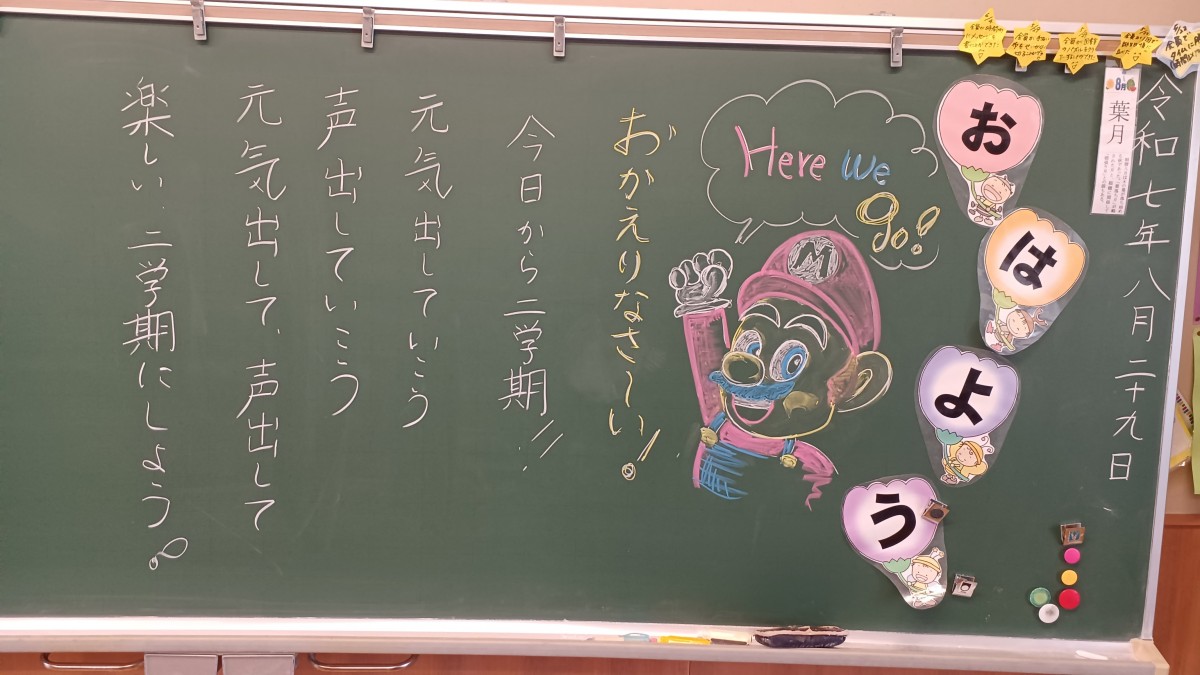 令和七年八月二十九日
8月
葉月
お
は
よ
う
Here we
go!
M
おかえりなさ～い!
今日から二学期!!
元気出していこう
声出していこう
元気出して、声出して
楽しい、二学期にしよう!